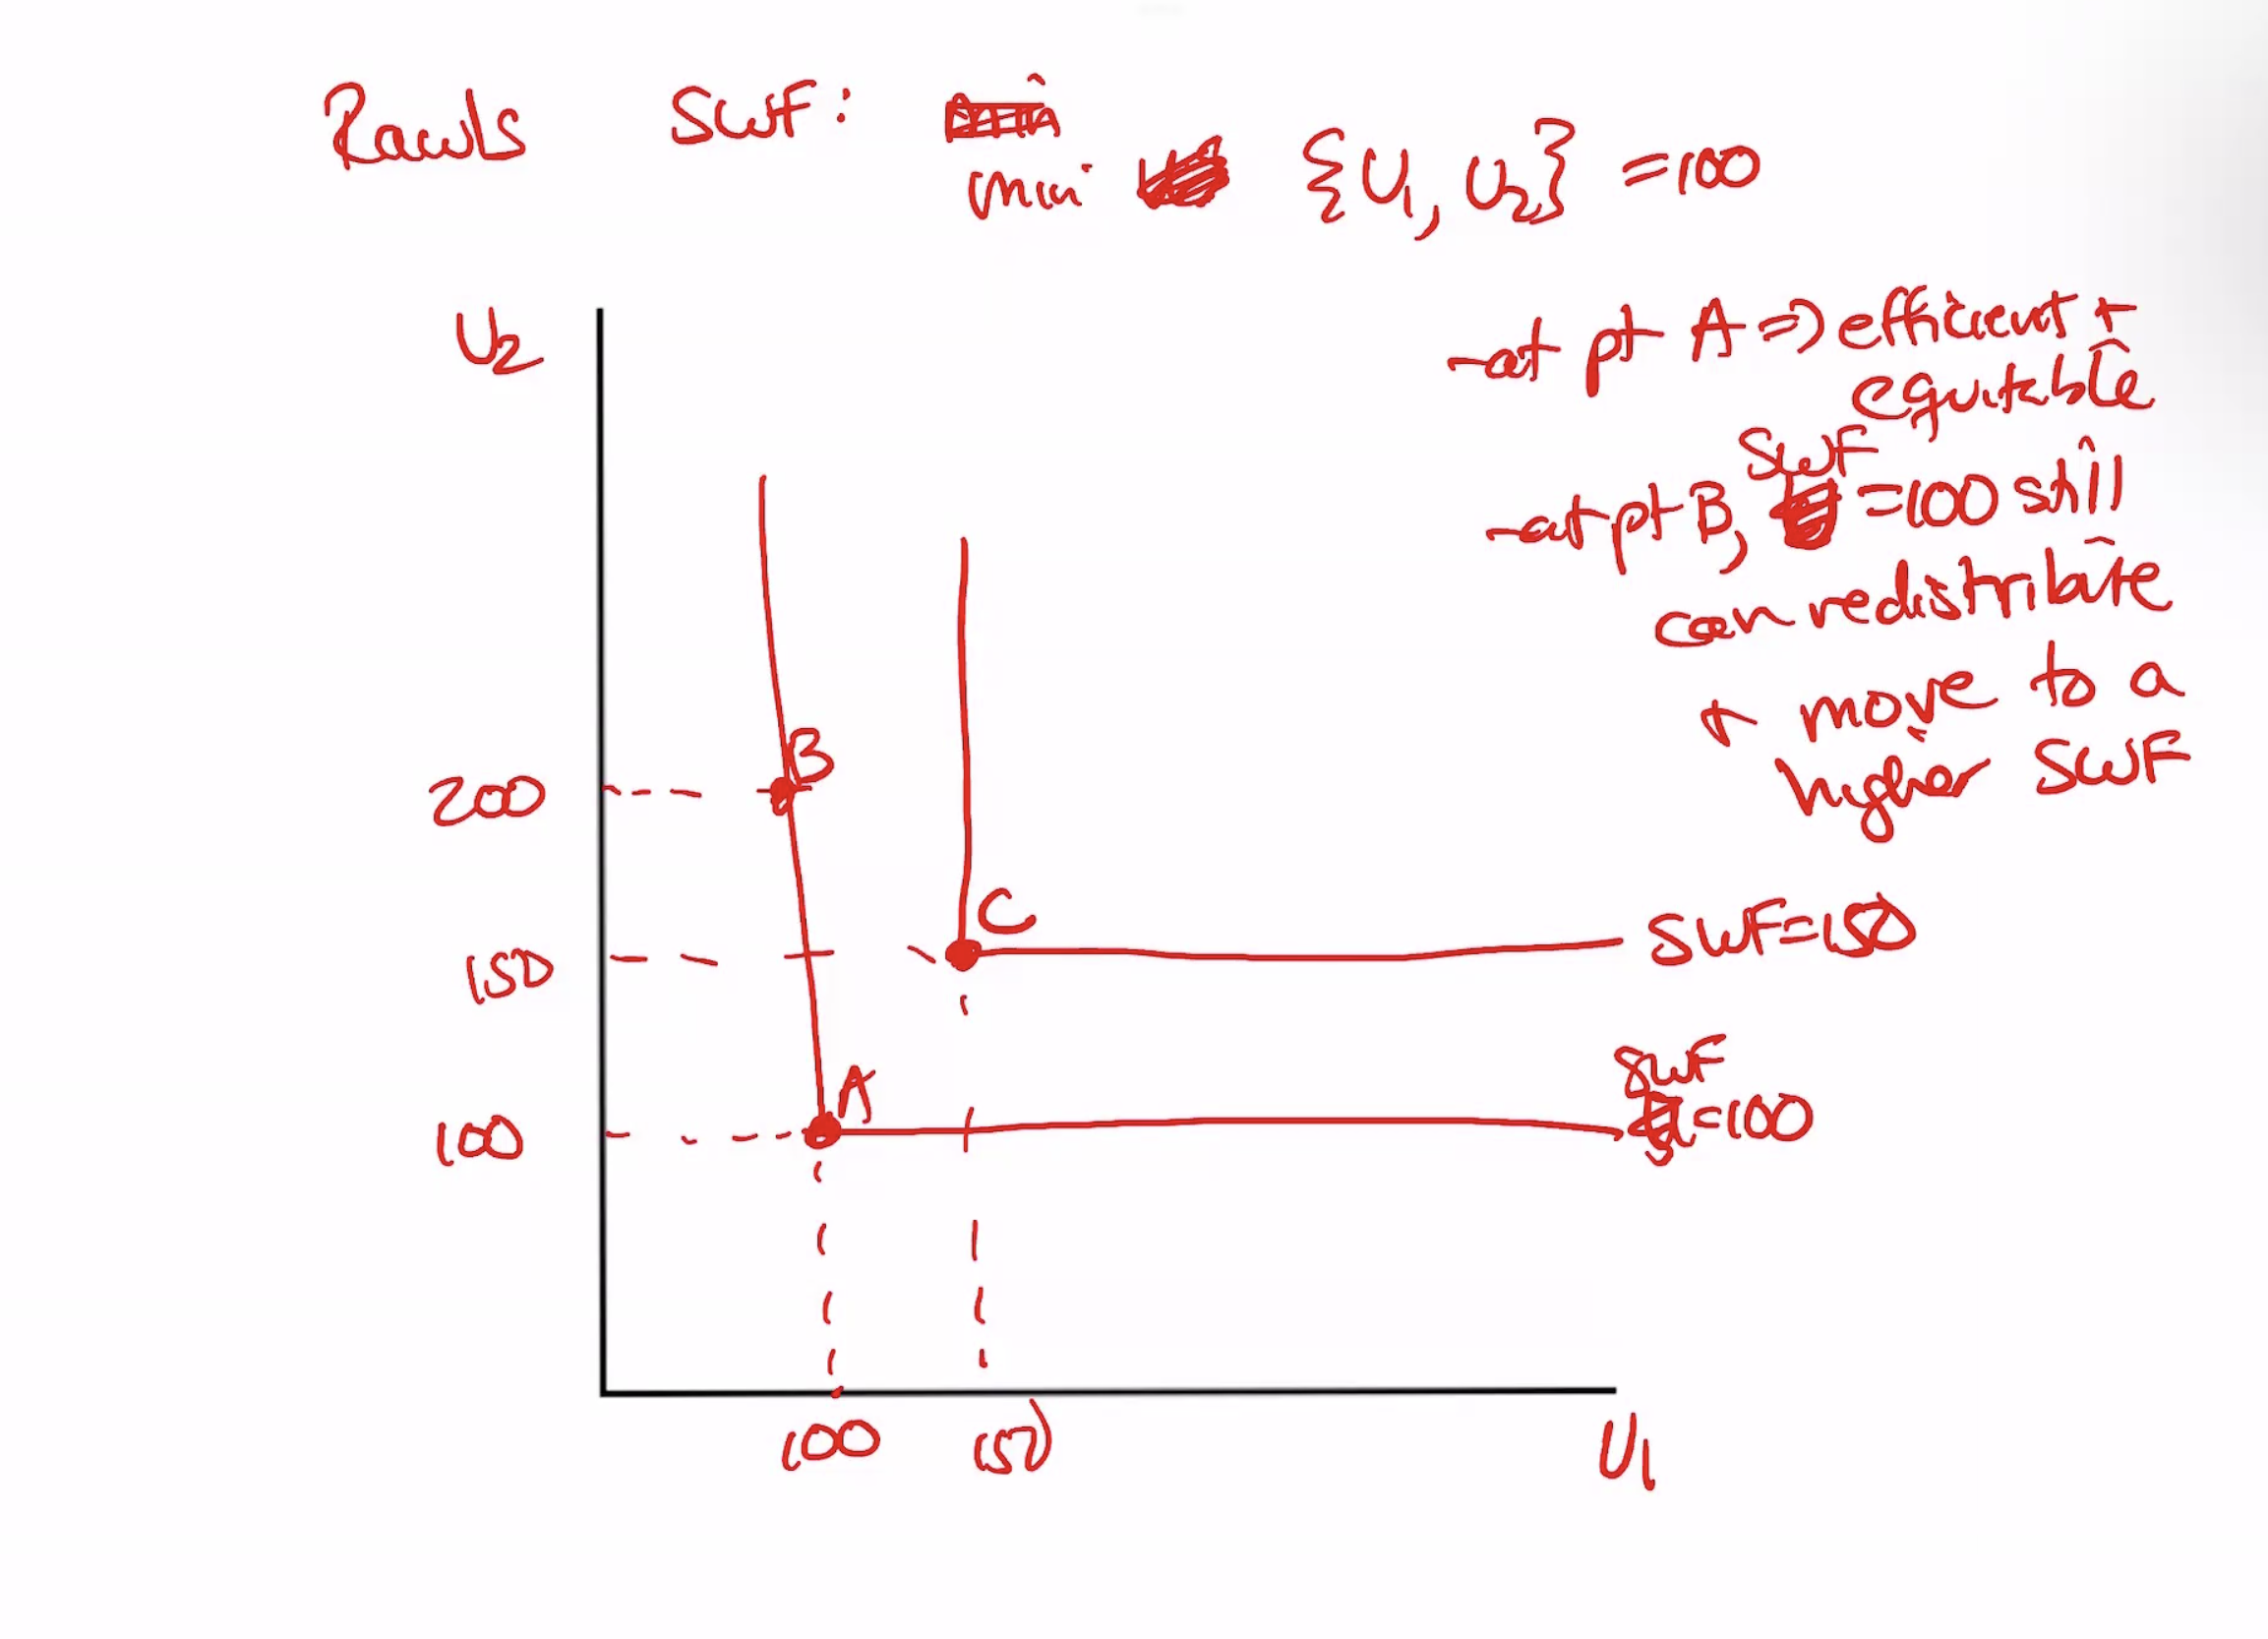 Rawls SWF:
min {U1, U2} = 100
U2
-at pt A => efficient +
equitable
SWF
-at pt B, = 100 still
can redistribute
+ move to a
higher SWF
B
200
C
SWF=150
150
A
SWF
=100
100
100 150
U1